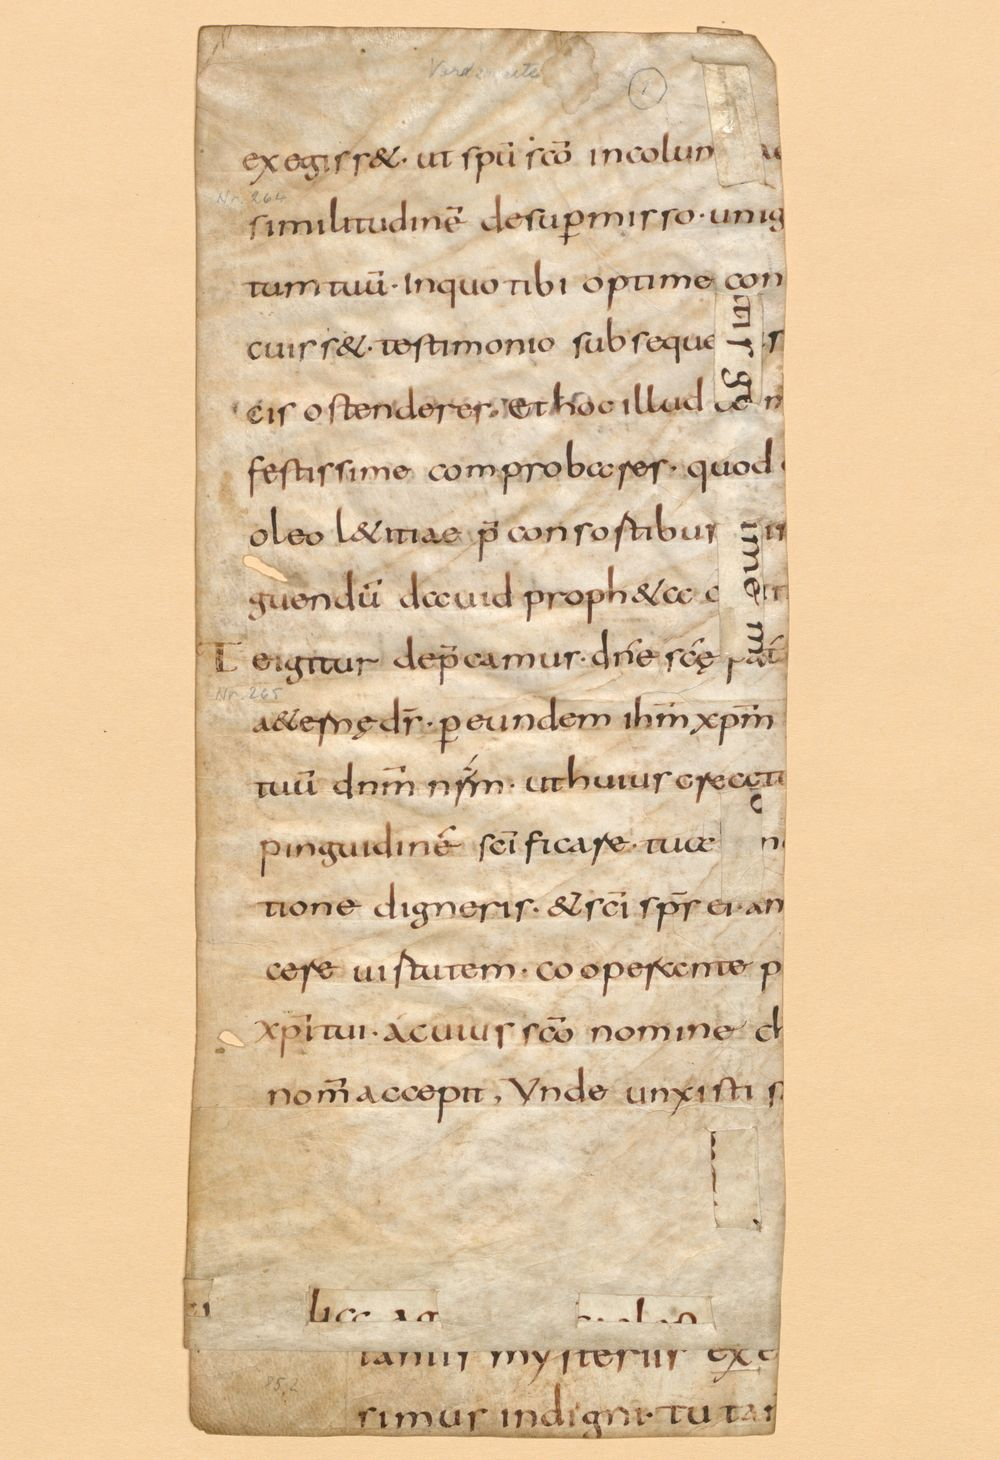 Verdeneite
1
exegiss&. ut spū scō incolum
Nr. 264
similitudinē desup̱misso. unig
tumtuū. Inquo tibi optime con
cuiss&. testimonio subseque
cis ostenderes. et hoc illud
festissime conprobares. quod
oleo l&itiae p̄ consostibus
guendū dauid proph&a
Teigitur dep̄camur. dn̄e scę
Nr. 265
a&ernę ds̄. p̱ eundem ihm̄ xpm̄
tuū dnm̄ nrm̄. ut huius creatu
pinguidinē sc̄ificare. tua
tione digneris. & sc̄i sps̄ ei. an
cere uirtutem. cooperante p
xp̄i tui. acuius scō nomine ch
nom̄ accepit, Vnde unxisti s
tis ge
ime m
lica ag
iamur mysteriis exe
85,2
simus indigni. tu tam